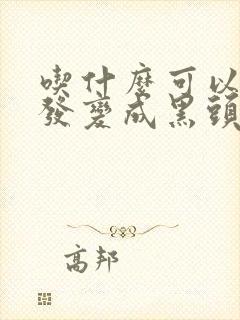 喫什麼可以
發變成黑頭
高邦